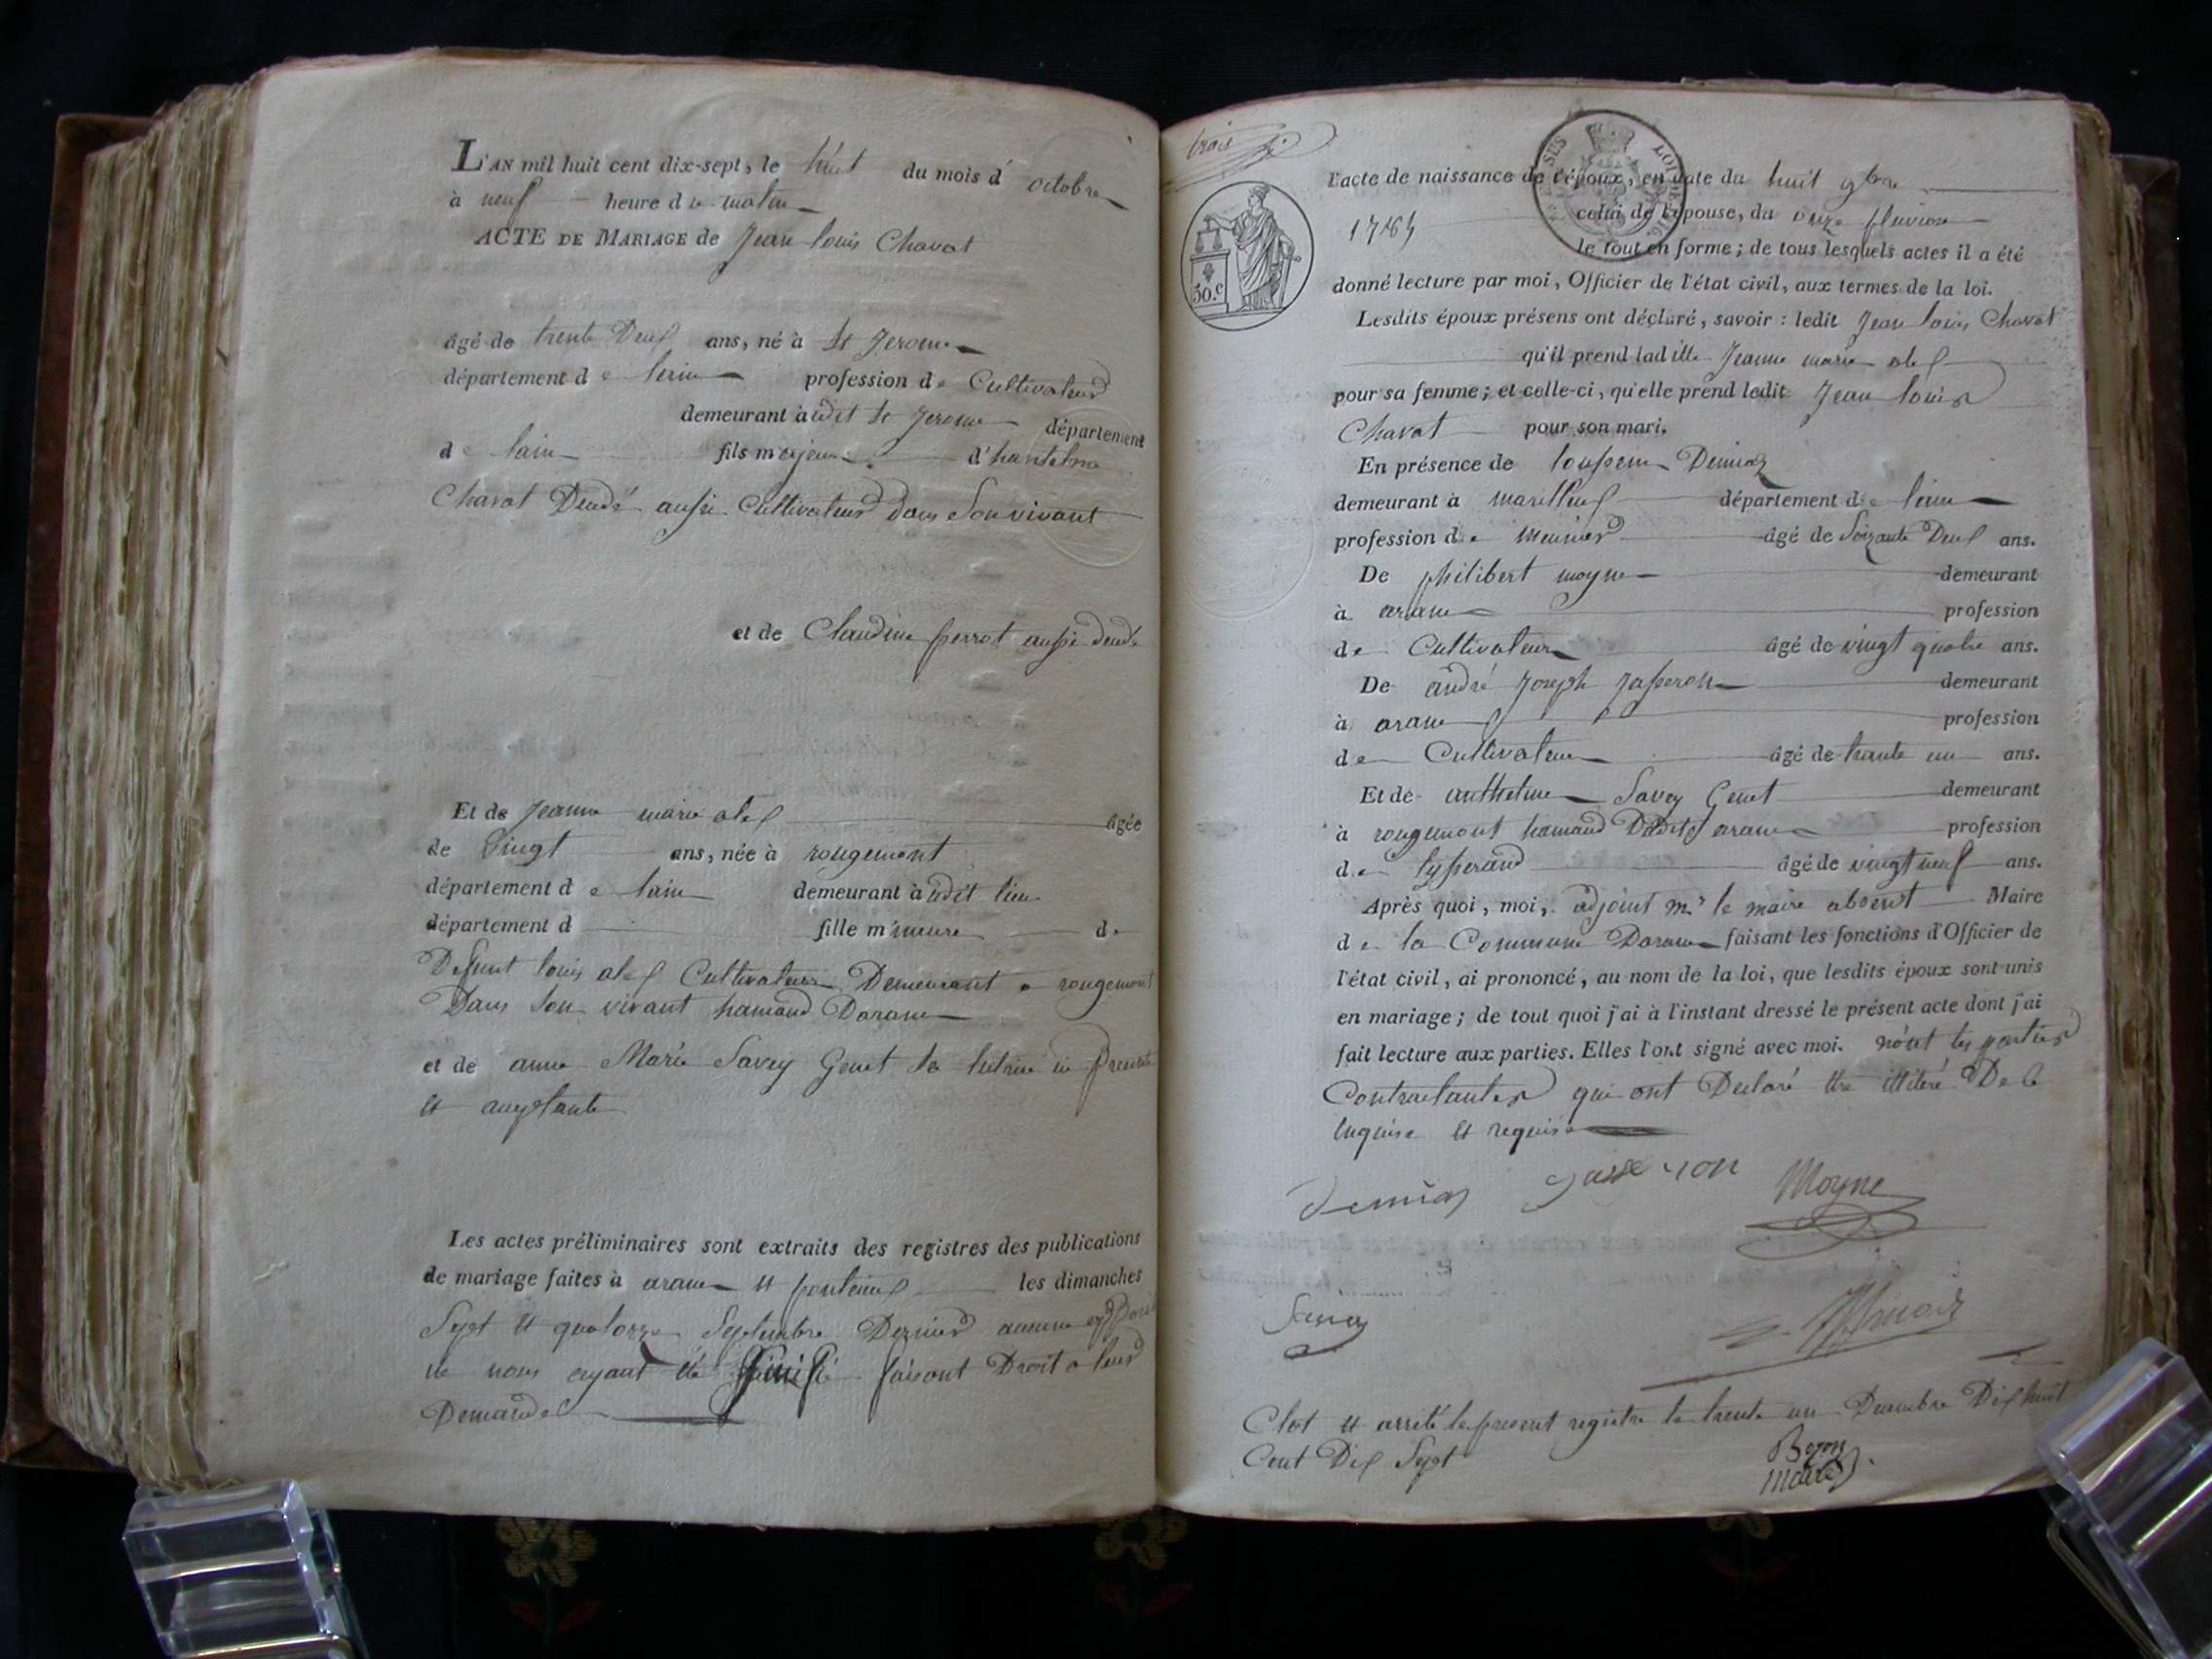 L'AN mil huit cent dix-sept, le huit du mois d' octobre
à neuf heure du matin
ACTE DE MARIAGE de Jean Louis Chavat
âgé de trente Deux ans, né à St Jerome
département de lain profession de Cultivateur
demeurant à udit St Jerome département
de lain fils majeur d'hantelme
Chavat Decdé aussi Cultivateur dans Son vivant
et de Claudine perrot aussi decdé
Et de Jeanne marie alex âgée
de Vingt ans, née à rougemont
département de lain demeurant à udit lieu
département d fille mineure de
Defunt louis alex Cultivateur Demeurant a rougemont
Dans Son vivant hamaud Daranc
et de anne Marie Savey Genet sa tutrice ici presente
et
Les actes préliminaires sont extraits des registres des publications
de mariage faites à aranc et les dimanches
Sept et quatorze Septembre Dernier aucune
ne nous ayant été faisant Droit a leur
Demande
trois
50.c
l'acte de naissance de l'époux, en date du huit 9bre
1784 celui de l'épouse, du onze pluviose
le tout en forme; de tous lesquels actes il a été
donné lecture par moi, Officier de l'état civil, aux termes de la loi.
Lesdits époux présens ont déclaré, savoir : ledit Jean Louis Chavat
qu'il prend ladille Jeanne marie alex
pour sa femme; et celle-ci, qu'elle prend ledit Jean louis
Chavat pour son mari.
En présence de
demeurant à département de lain
profession de meunier âgé de Soixante Deux ans.
De philibert moyne demeurant
à aranc profession
de Cultivateur âgé de vingt quatre ans.
De andré Joseph Jasseron demeurant
à aranc profession
de Cultivateur âgé de trante un ans.
Et de anthelme Savey Genet demeurant
à rougemont hamaud Dudit aranc profession
de tysserand âgé de vingt neuf ans.
Après quoi, moi, adjoint mr le maire absent Maire
de la Commune Daranc faisant les fonctions d'Officier de
l'état civil, ai prononcé, au nom de la loi, que lesdits époux sont unis
en mariage; de tout quoi j'ai à l'instant dressé le présent acte dont j'ai
fait lecture aux parties. Elles l'ont signé avec moi. non les parties
Contractantes qui ont Declaré être illiteré De ce
enquise et requise
Jasseron Moyne
Savey
Clot et arrêté le present registre le trente un Decembre Dix huit
Cent Dix Sept
maire